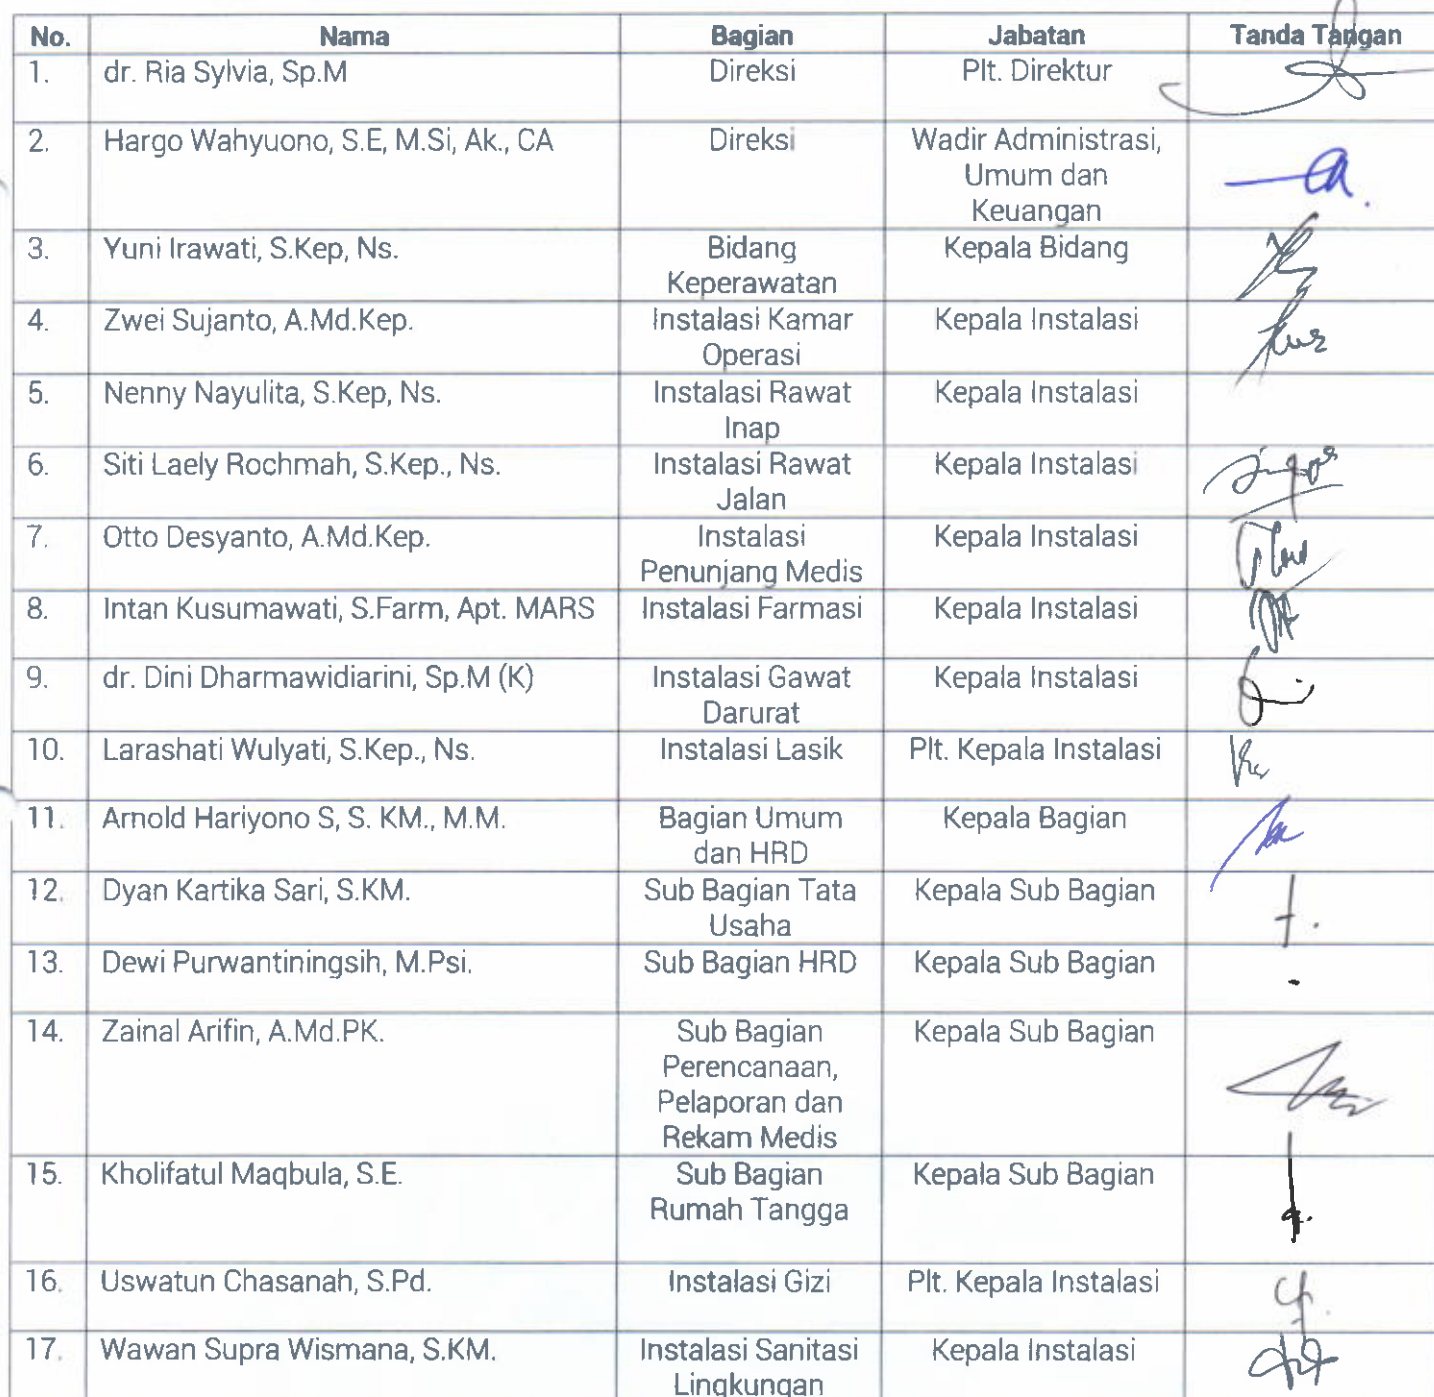 No. Nama Bagian Jabatan Tanda Tangan
1. dr. Ria Sylvia, Sp.M Direksi Plt. Direktur
2. Hargo Wahyuono, S.E, M.Si, Ak., CA Direksi Wadir Administrasi,
Umum dan
Keuangan
3. Yuni Irawati, S.Kep, Ns. Bidang Kepala Bidang
Keperawatan
4. Zwei Sujanto, A.Md.Kep. Instalasi Kamar Kepala Instalasi
Operasi
5. Nenny Nayulita, S.Kep, Ns. Instalasi Rawat Kepala Instalasi
Inap
6. Siti Laely Rochmah, S.Kep., Ns. Instalasi Rawat Kepala Instalasi
Jalan
7. Otto Desyanto, A.Md.Kep. Instalasi Kepala Instalasi
Penunjang Medis
8. Intan Kusumawati, S.Farm, Apt. MARS Instalasi Farmasi Kepala Instalasi
9. dr. Dini Dharmawidiarini, Sp.M (K) Instalasi Gawat Kepala Instalasi
Darurat
10. Larashati Wulyati, S.Kep., Ns. Instalasi Lasik Plt. Kepala Instalasi
11. Arnold Hariyono S, S. KM., M.M. Bagian Umum Kepala Bagian
dan HRD
12. Dyan Kartika Sari, S.KM. Sub Bagian Tata Kepala Sub Bagian
Usaha
13. Dewi Purwantiningsih, M.Psi. Sub Bagian HRD Kepala Sub Bagian
14. Zainal Arifin, A.Md.PK. Sub Bagian Kepala Sub Bagian
Perencanaan,
Pelaporan dan
Rekam Medis
15. Kholifatul Maqbula, S.E. Sub Bagian Kepala Sub Bagian
Rumah Tangga
16. Uswatun Chasanah, S.Pd. Instalasi Gizi Plt. Kepala Instalasi
17. Wawan Supra Wismana, S.KM. Instalasi Sanitasi Kepala Instalasi
Lingkungan